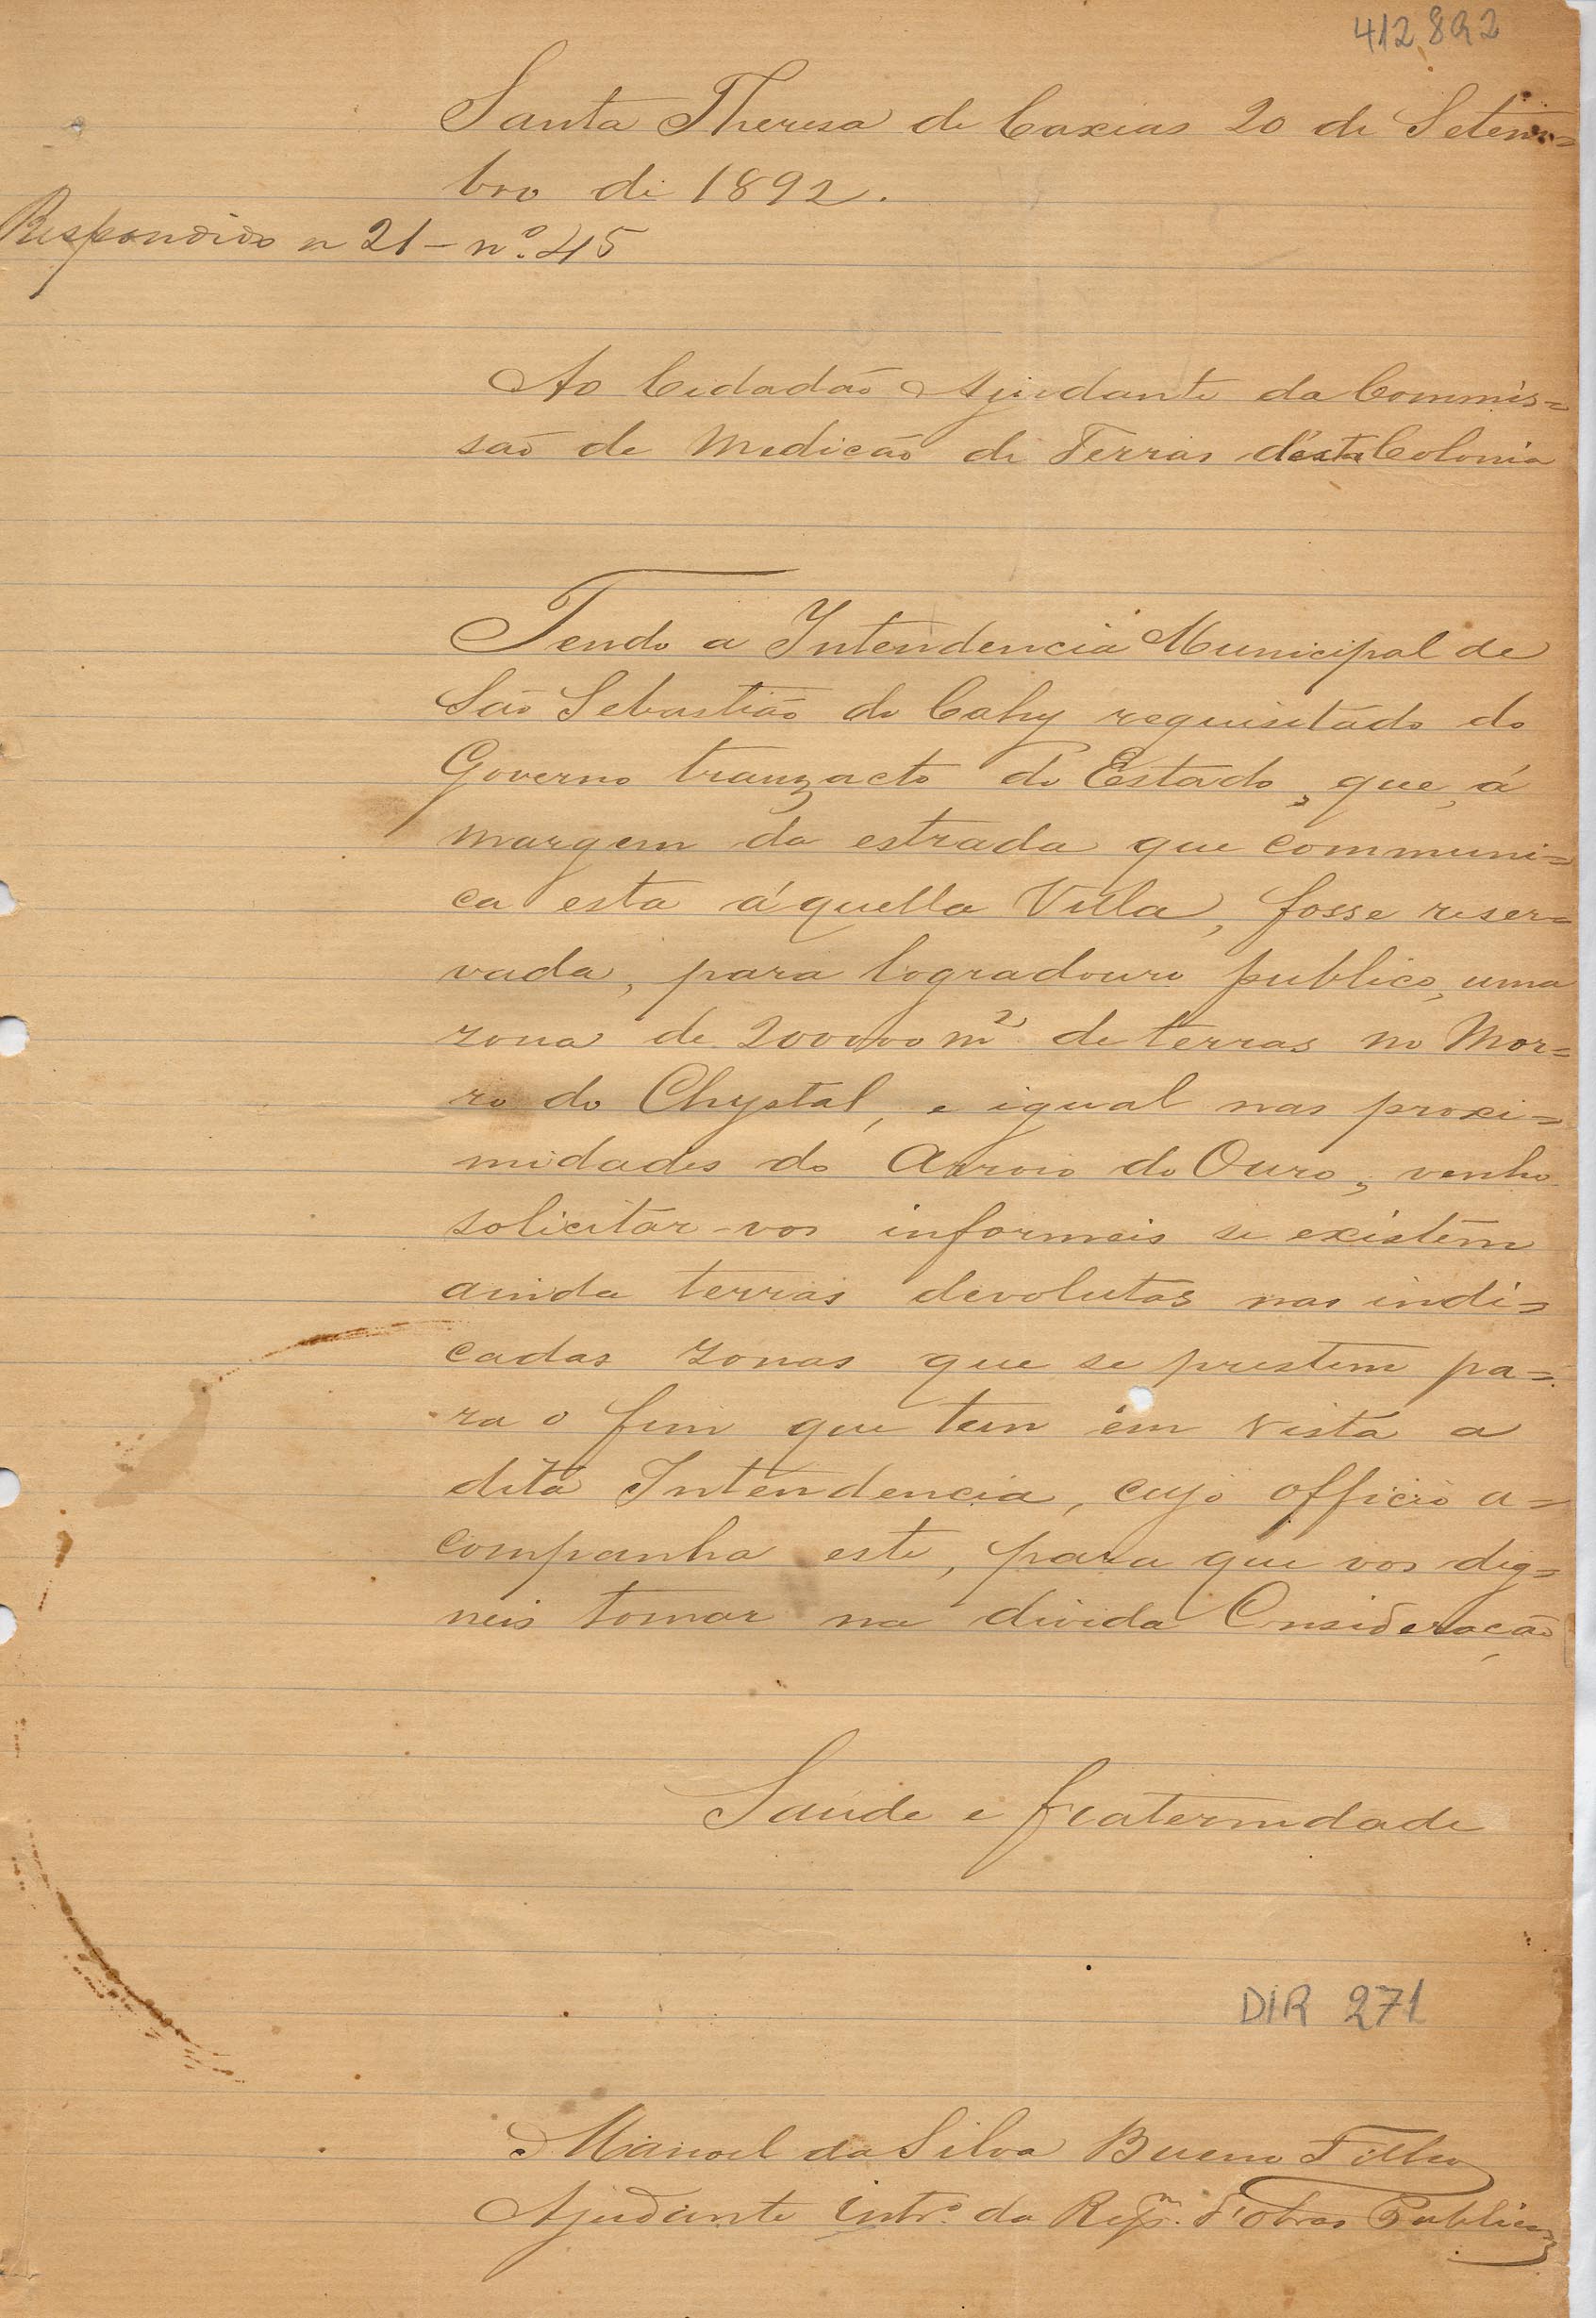 412.892
Santa Thereza de Caxias 20 de Setem=
bro de 1892.
Respondido a 21 – nº 45
Ao Cidadão Ajudante da Commis=
são de Medicão de Terras d'esta Colonia
Tendo a Intendencia Municipal de
São Sebastião do Cahy requisitado do
Governo tranzacto do Estado, que, á
margem da estrada que communi=
ca esta áquella Villa, fosse reser=
vada, para logradouro publico, uma
zona de 200000 m² de terras no Mor=
ro do Chystal, e igual nas proxi=
midades do Arroio do Ouro, venho
solicitar-vos informeis se existem
ainda terras devolutas nas indi=
cadas zonas que se prestem pa=
ra o fim que tem em vista a
dita Intendencia, cujo officio a=
companha este, para que vos dig=
neis tomar na divida Consideração
Saúde e fraternidade
DIR 271
Manoel da Silva Bueno Filho
Ajudante Intrº da Repm. d'obras Publicas